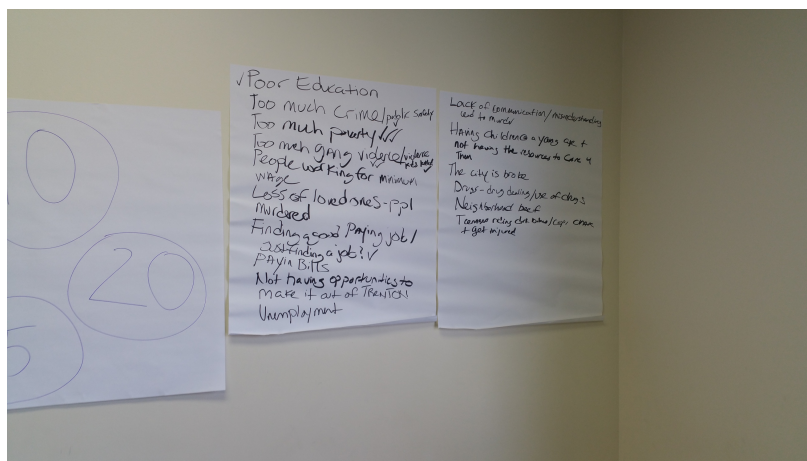 0
20
5
✓Poor Education
Too much Crime/public Safety
Too much poverty ✓✓✓
Too much gang violence/violence
People working for minimum
wage
Loss of loved ones-ppl
murdered
Finding a good Paying job/
Just finding a job? ✓
PAYIN BILLS
Not having opportunities to
make it out of TRENTON
Unemployment
Lack of communication/misunderstanding
lead to murder
Having children @ a young age +
not having the resources to care 4
Them
The city is broke
Drugs-drug dealing/use of drugs
Neighborhood beef
riding dirt bikes/cops chase
+ get injured